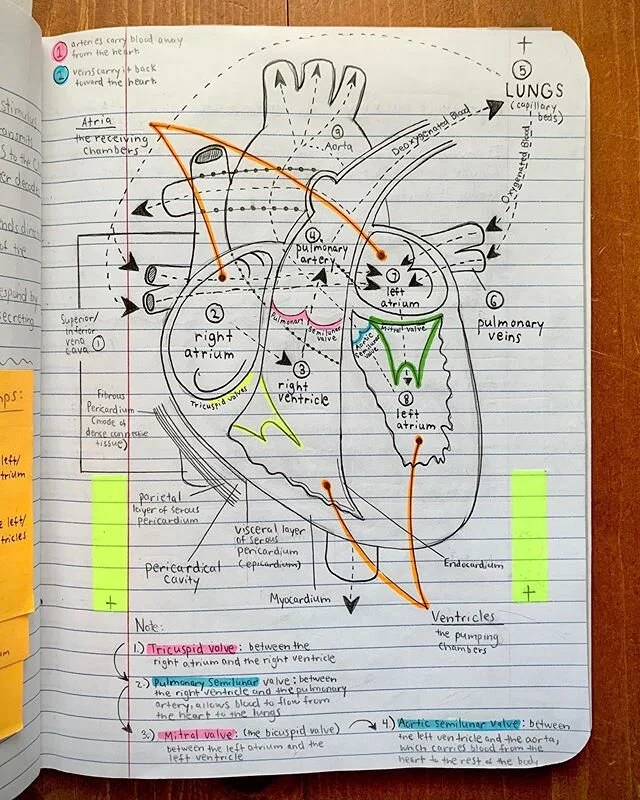 1 arteries carry blood away
from the heart
2 veins carry it back
toward the heart
+
5
LUNGS
(capillary
beds)
Atria
the receiving
chambers
9
Aorta
Deoxygenated Blood
Oxygenated Blood
4
pulmonary
artery
7
left
atrium
6
pulmonary
veins
2
right
atrium
Pulmonary Semilunar
valve
Aortic
Semilunar
valve
Mitral valve
Superior/
Inferior
vena
cava 1
3
right
ventricle
8
left
atrium
Tricuspid valves
Fibrous
Pericardium
(made of
dense connective
tissue)
parietal
layer of serous
pericardium
visceral layer
of serous
pericardium
(epicardium)
pericardical
cavity
Endocardium
Myocardium
+
+
Ventricles
the pumping
chambers
Note:
1.) Tricuspid valve: between the
right atrium and the right ventricle
2.) Pulmonary Semilunar valve: between
the right ventricle and the pulmonary
artery, allows blood to flow from
the heart to the lungs
3.) Mitral valve: (the bicuspid valve)
between the left atrium and the
left ventricle
4.) Aortic semilunar valve: between
the left ventricle and the aorta,
which carries blood from the
heart to the rest of the body